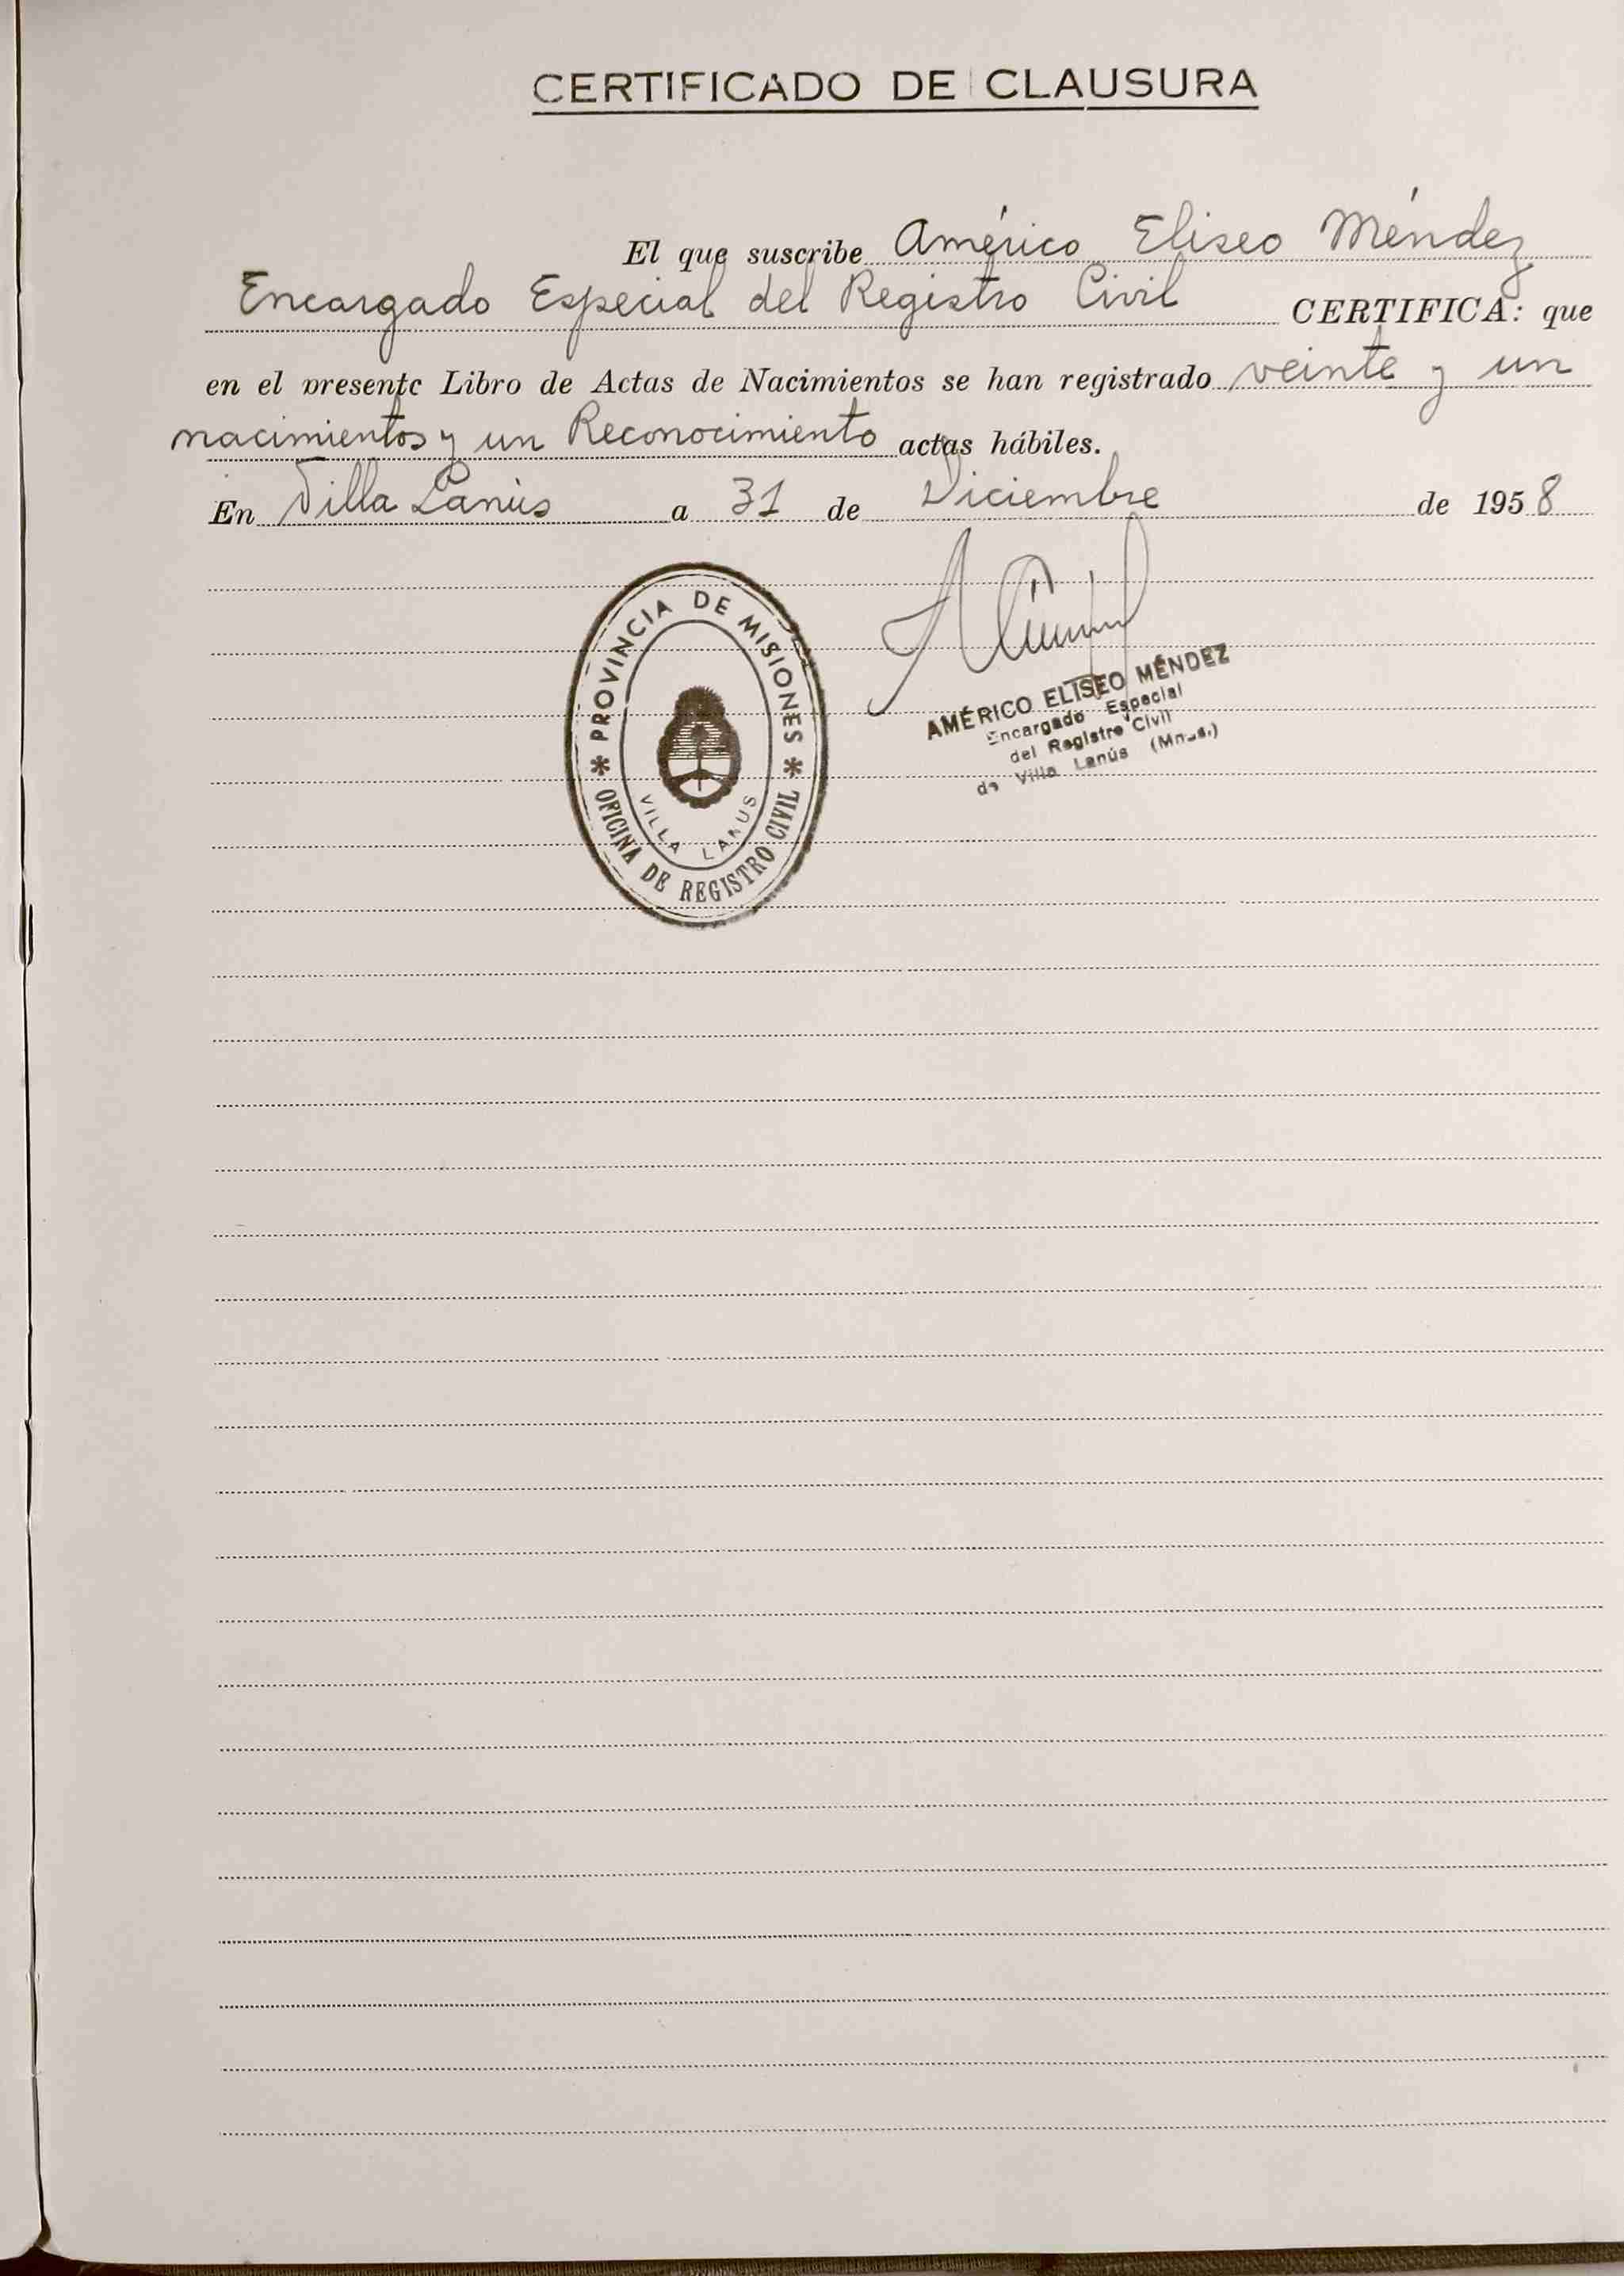 CERTIFICADO DE CLAUSURA
El que suscribe Américo Eliseo Méndez
Encargado Especial del Registro Civil CERTIFICA: que
en el presente Libro de Actas de Nacimientos se han registrado veinte y un
nacimientos y un Reconocimiento actas hábiles.
En Villa Lanús a 31 de Diciembre de 1958
PROVINCIA DE MISIONES
VILLA LANUS
* OFICINA DE REGISTRO CIVIL *
AMÉRICO ELISEO MÉNDEZ
Encargado Especial
del Registro Civil
de Villa Lanús (Mnes.)